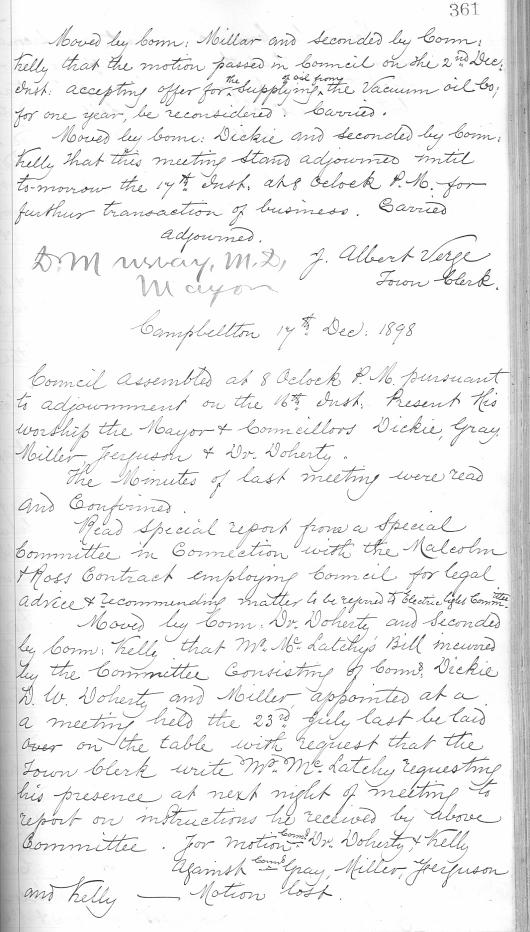 361
Moved by Conn: Millar and seconded by Conn:
Kelly that the motion passed in Council on the 2nd Dec.
Inst: accepting offer for the supplying of oil from the Vacuum oil Co;
for one year, be reconsidered. Carried.
Moved by Conn: Dickie and seconded by Conn:
Kelly that this meeting stand adjourned until
to-morrow the 17th Inst. at 8 Oclock P.M. for
furthur transaction of business. Carried
adjourned.
D. Murray, M.D, J. Albert Verge
Mayor Town Clerk.
Campbellton 17th Dec: 1898
Council assembled at 8 Oclock P.M. pursuant
to adjournment on the 16th Inst: Present His
worship the Mayor & Councillors Dickie, Gray,
Miller, Ferguson & Dr. Doherty.
The Minutes of last meeting were read
and Confirmed.
Read special report from a Special
Committee in Connection with the Malcolm
& Ross Contract employing Council for legal
advice & recommending matter to be referred to Electric light Committee
Moved by Conn: Dr. Doherty and Seconded
by Conn: Kelly that Mr. McLatchy's Bill incurred
by the Committee Consisting of Conns. Dickie
D. W. Doherty and Miller, appointed at a
a meeting held the 23rd July last be laid
over on the table with request that the
Town Clerk write Mr. McLatchy requesting
his presence at next night of meeting to
report on instructions he received by above
Committee. For motion Conns. Dr. Doherty & Kelly
Against Conns. Gray, Miller, Ferguson
and Kelly — Motion lost.